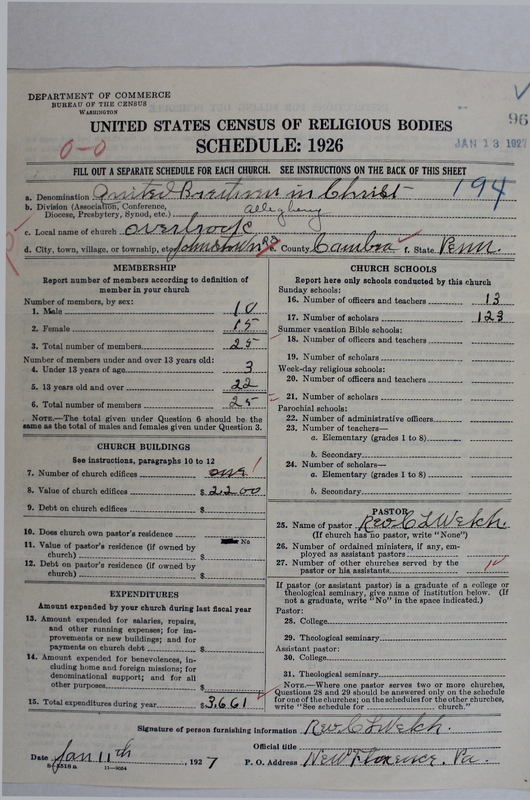 DEPARTMENT OF COMMERCE
BUREAU OF THE CENSUS
WASHINGTON
96
UNITED STATES CENSUS OF RELIGIOUS BODIES
SCHEDULE: 1926
JAN 13 1927
0-0
FILL OUT A SEPARATE SCHEDULE FOR EACH CHURCH. SEE INSTRUCTIONS ON THE BACK OF THIS SHEET
a. Denomination United Brethren in Christ 194
b. Division (Association, Conference, Diocese, Presbytery, Synod, etc.) Allegheny
c. Local name of church Overbrook
d. City, town, village, or township, etc. Johnstown e. County Cambria f. State Penn.
MEMBERSHIP
Report number of members according to definition of
member in your church
Number of members, by sex:
1. Male 10
2. Female 15
3. Total number of members 25
Number of members under and over 13 years old:
4. Under 13 years of age 3
5. 13 years old and over 22
6. Total number of members 25
NOTE.—The total given under Question 6 should be the
same as the total of males and females given under Question 3.
CHURCH BUILDINGS
See instructions, paragraphs 10 to 12
7. Number of church edifices one 1
8. Value of church edifices $2200
9. Debt on church edifices $
10. Does church own pastor's residence No
11. Value of pastor's residence (if owned by
church) $
12. Debt on pastor's residence (if owned by
church) $
EXPENDITURES
Amount expended by your church during last fiscal year
13. Amount expended for salaries, repairs,
and other running expenses; for im-
provements or new buildings; and for
payments on church debt $
14. Amount expended for benevolences, in-
cluding home and foreign missions; for
denominational support; and for all
other purposes $
15. Total expenditures during year $3661
CHURCH SCHOOLS
Report here only schools conducted by this church
Sunday schools:
16. Number of officers and teachers 13
17. Number of scholars 123
Summer vacation Bible schools:
18. Number of officers and teachers
19. Number of scholars
Week-day religious schools:
20. Number of officers and teachers
21. Number of scholars
Parochial schools:
22. Number of administrative officers
23. Number of teachers—
a. Elementary (grades 1 to 8)
b. Secondary
24. Number of scholars—
a. Elementary (grades 1 to 8)
b. Secondary
PASTOR
25. Name of pastor Rev C L Welch
(If church has no pastor, write "None")
26. Number of ordained ministers, if any, em-
ployed as assistant pastors
27. Number of other churches served by the
pastor or his assistants
If pastor (or assistant pastor) is a graduate of a college or
theological seminary, give name of institution below. (If
not a graduate, write "No" in the space indicated.)
Pastor:
28. College
29. Theological seminary
Assistant pastor:
30. College
31. Theological seminary
NOTE.—Where one pastor serves two or more churches,
Questions 28 and 29 should be answered only on the schedule
for one of the churches; on the schedules for the other churches,
write "See schedule for church."
Signature of person furnishing information Rev. C L Welch.
Official title
Date Jan 11th, 1927 P. O. Address New Florence, Pa.
8-6518a 11-9054